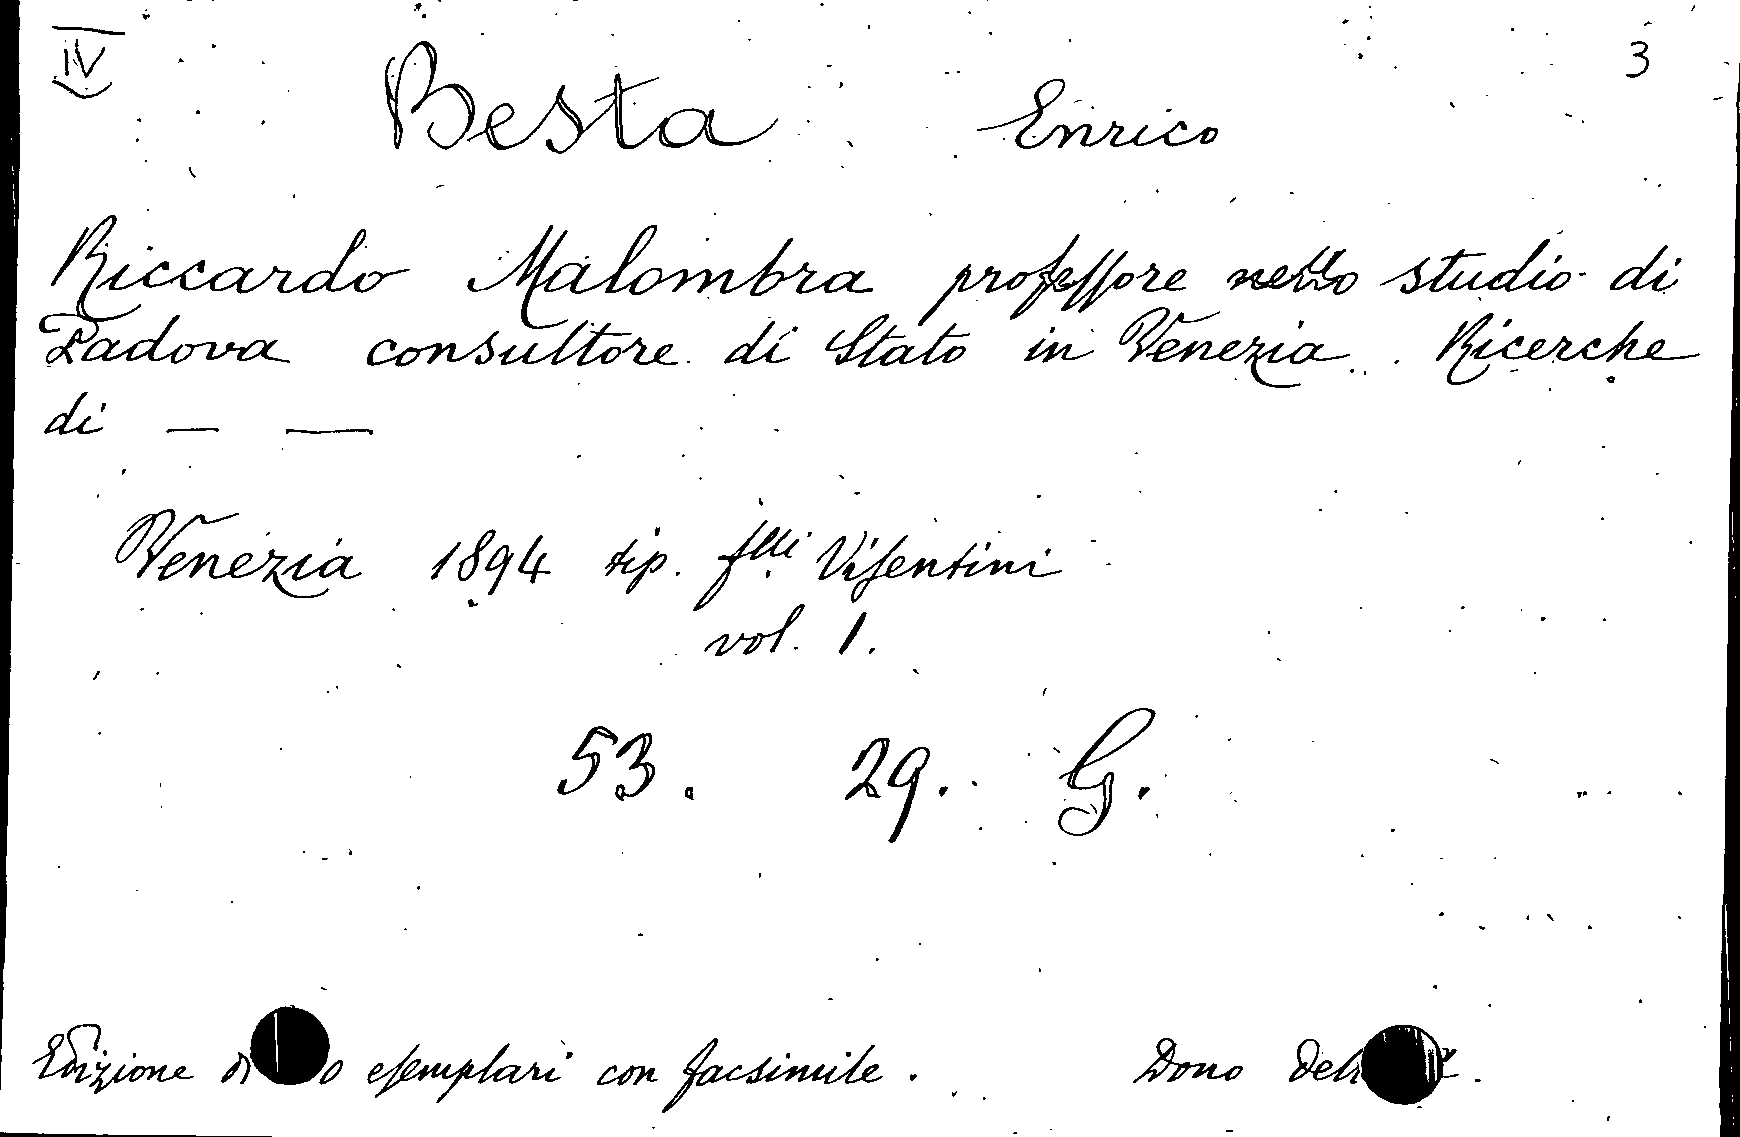 IV 3
Besta Enrico
Riccardo Malombra professore nello studio di
Padova consultore di Stato in Venezia. Ricerche
di — —
Venezia 1894 tip. f.lli Visentini
vol. 1.
53. 29. G.
Edizione esemplari con facsimile. Dono